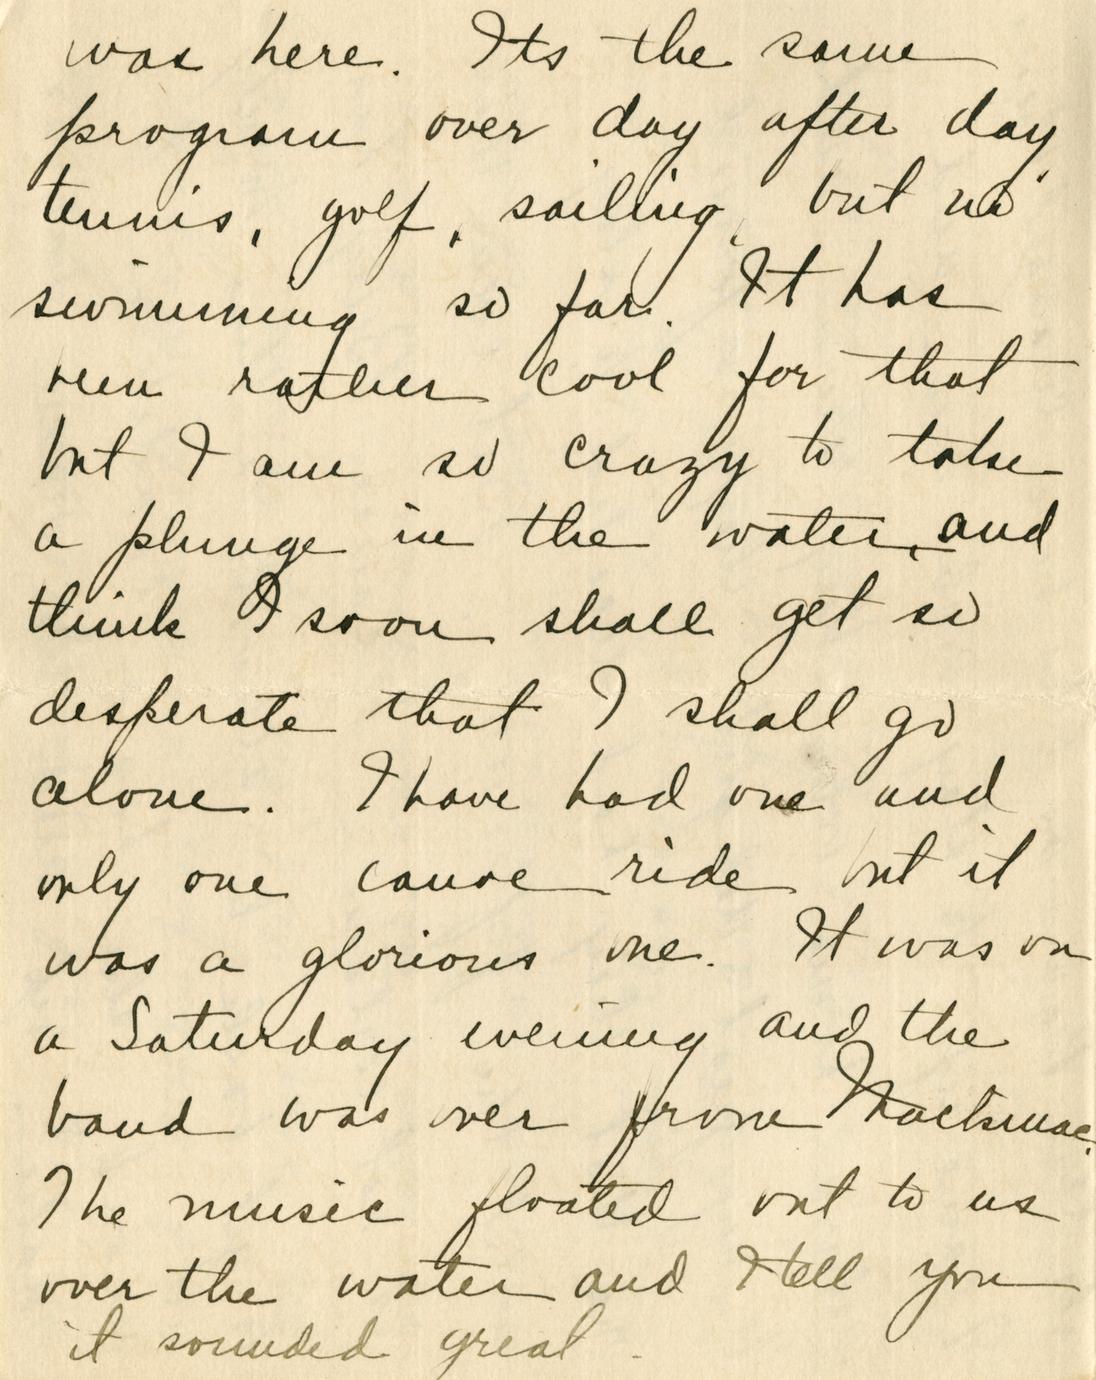 was here. Its the same
program over day after day
tennis, golf, sailing, but no
swimming so far. It has
been rather cool for that
but I am so crazy to take
a plunge in the water, and
think I soon shall get so
desperate that I shall go
alone. I have had one and
only one canoe ride but it
was a glorious one. It was on
a Saturday evening and the
band was over from Mackinac.
The music floated out to us
over the water and I tell you
it sounded great.